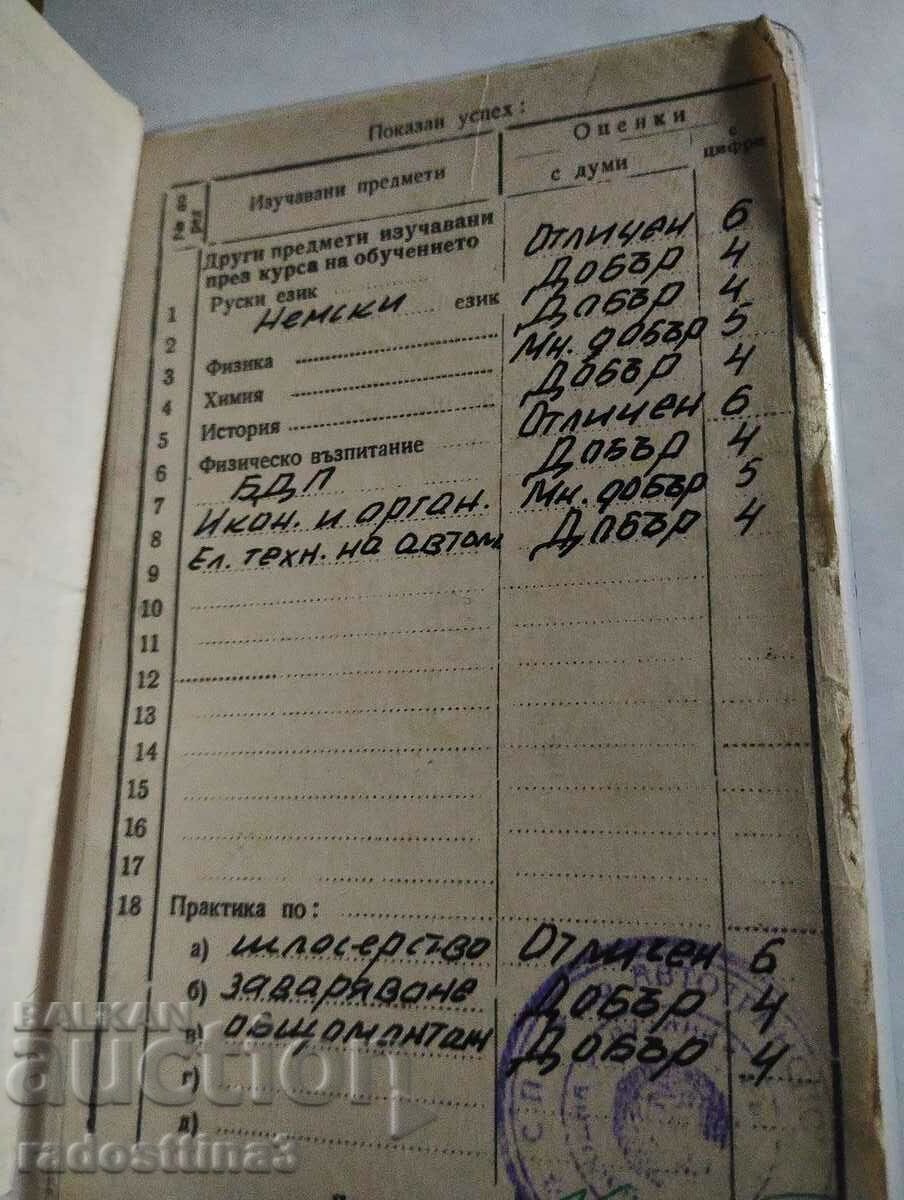 Показан успех:
№ по ред
Изучавани предмети
Оценки
с думи
с цифри
Други предмети изучавани
през курса на обучението
1 Руски език Отличен 6
2 Немски език Добър 4
3 Физика Добър 4
4 Химия Мн. добър 5
5 История Добър 4
6 Физическо възпитание Отличен 6
7 БДП Добър 4
8 Икон. и орган. Мн. добър 5
9 Ел. техн. на автом Добър 4
10
11
12
13
14
15
16
17
18 Практика по:
а) шлосерство Отличен 6
б) заваряване Добър 4
в) общомонтаж Добър 4
г)
д)
BALKAN
auction
radosttina3